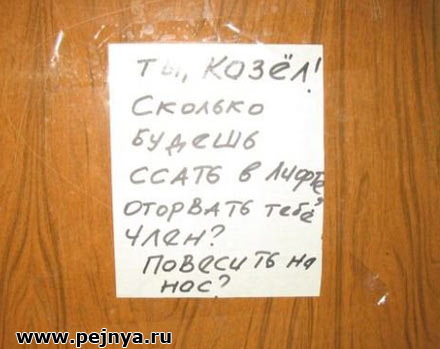 ТЫ, КОЗЁЛ!
СКОЛЬКО
БУДЕШЬ
ССАТЬ В ЛИФТЕ?
ОТОРВАТЬ ТЕБЕ
ЧЛЕН?
ПОВЕСИТЬ НА
НОС?
www.pejnya.ru